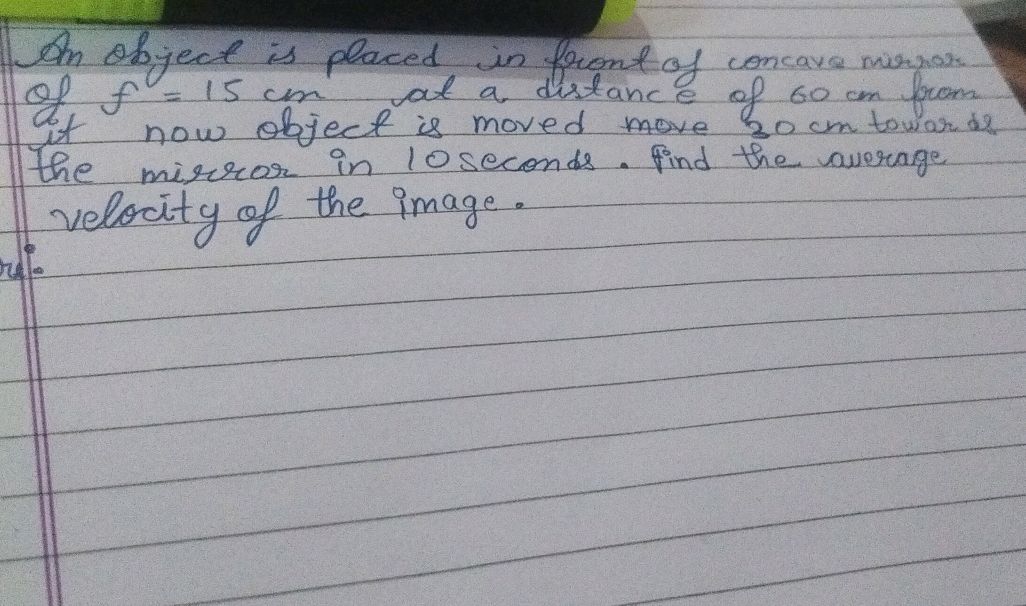 An object is placed in front of concave mirror
of f = 15 cm at a distance of 60 cm from
it now object is moved move 20 cm towards
the mirror in 10 seconds. find the average
velocity of the image.